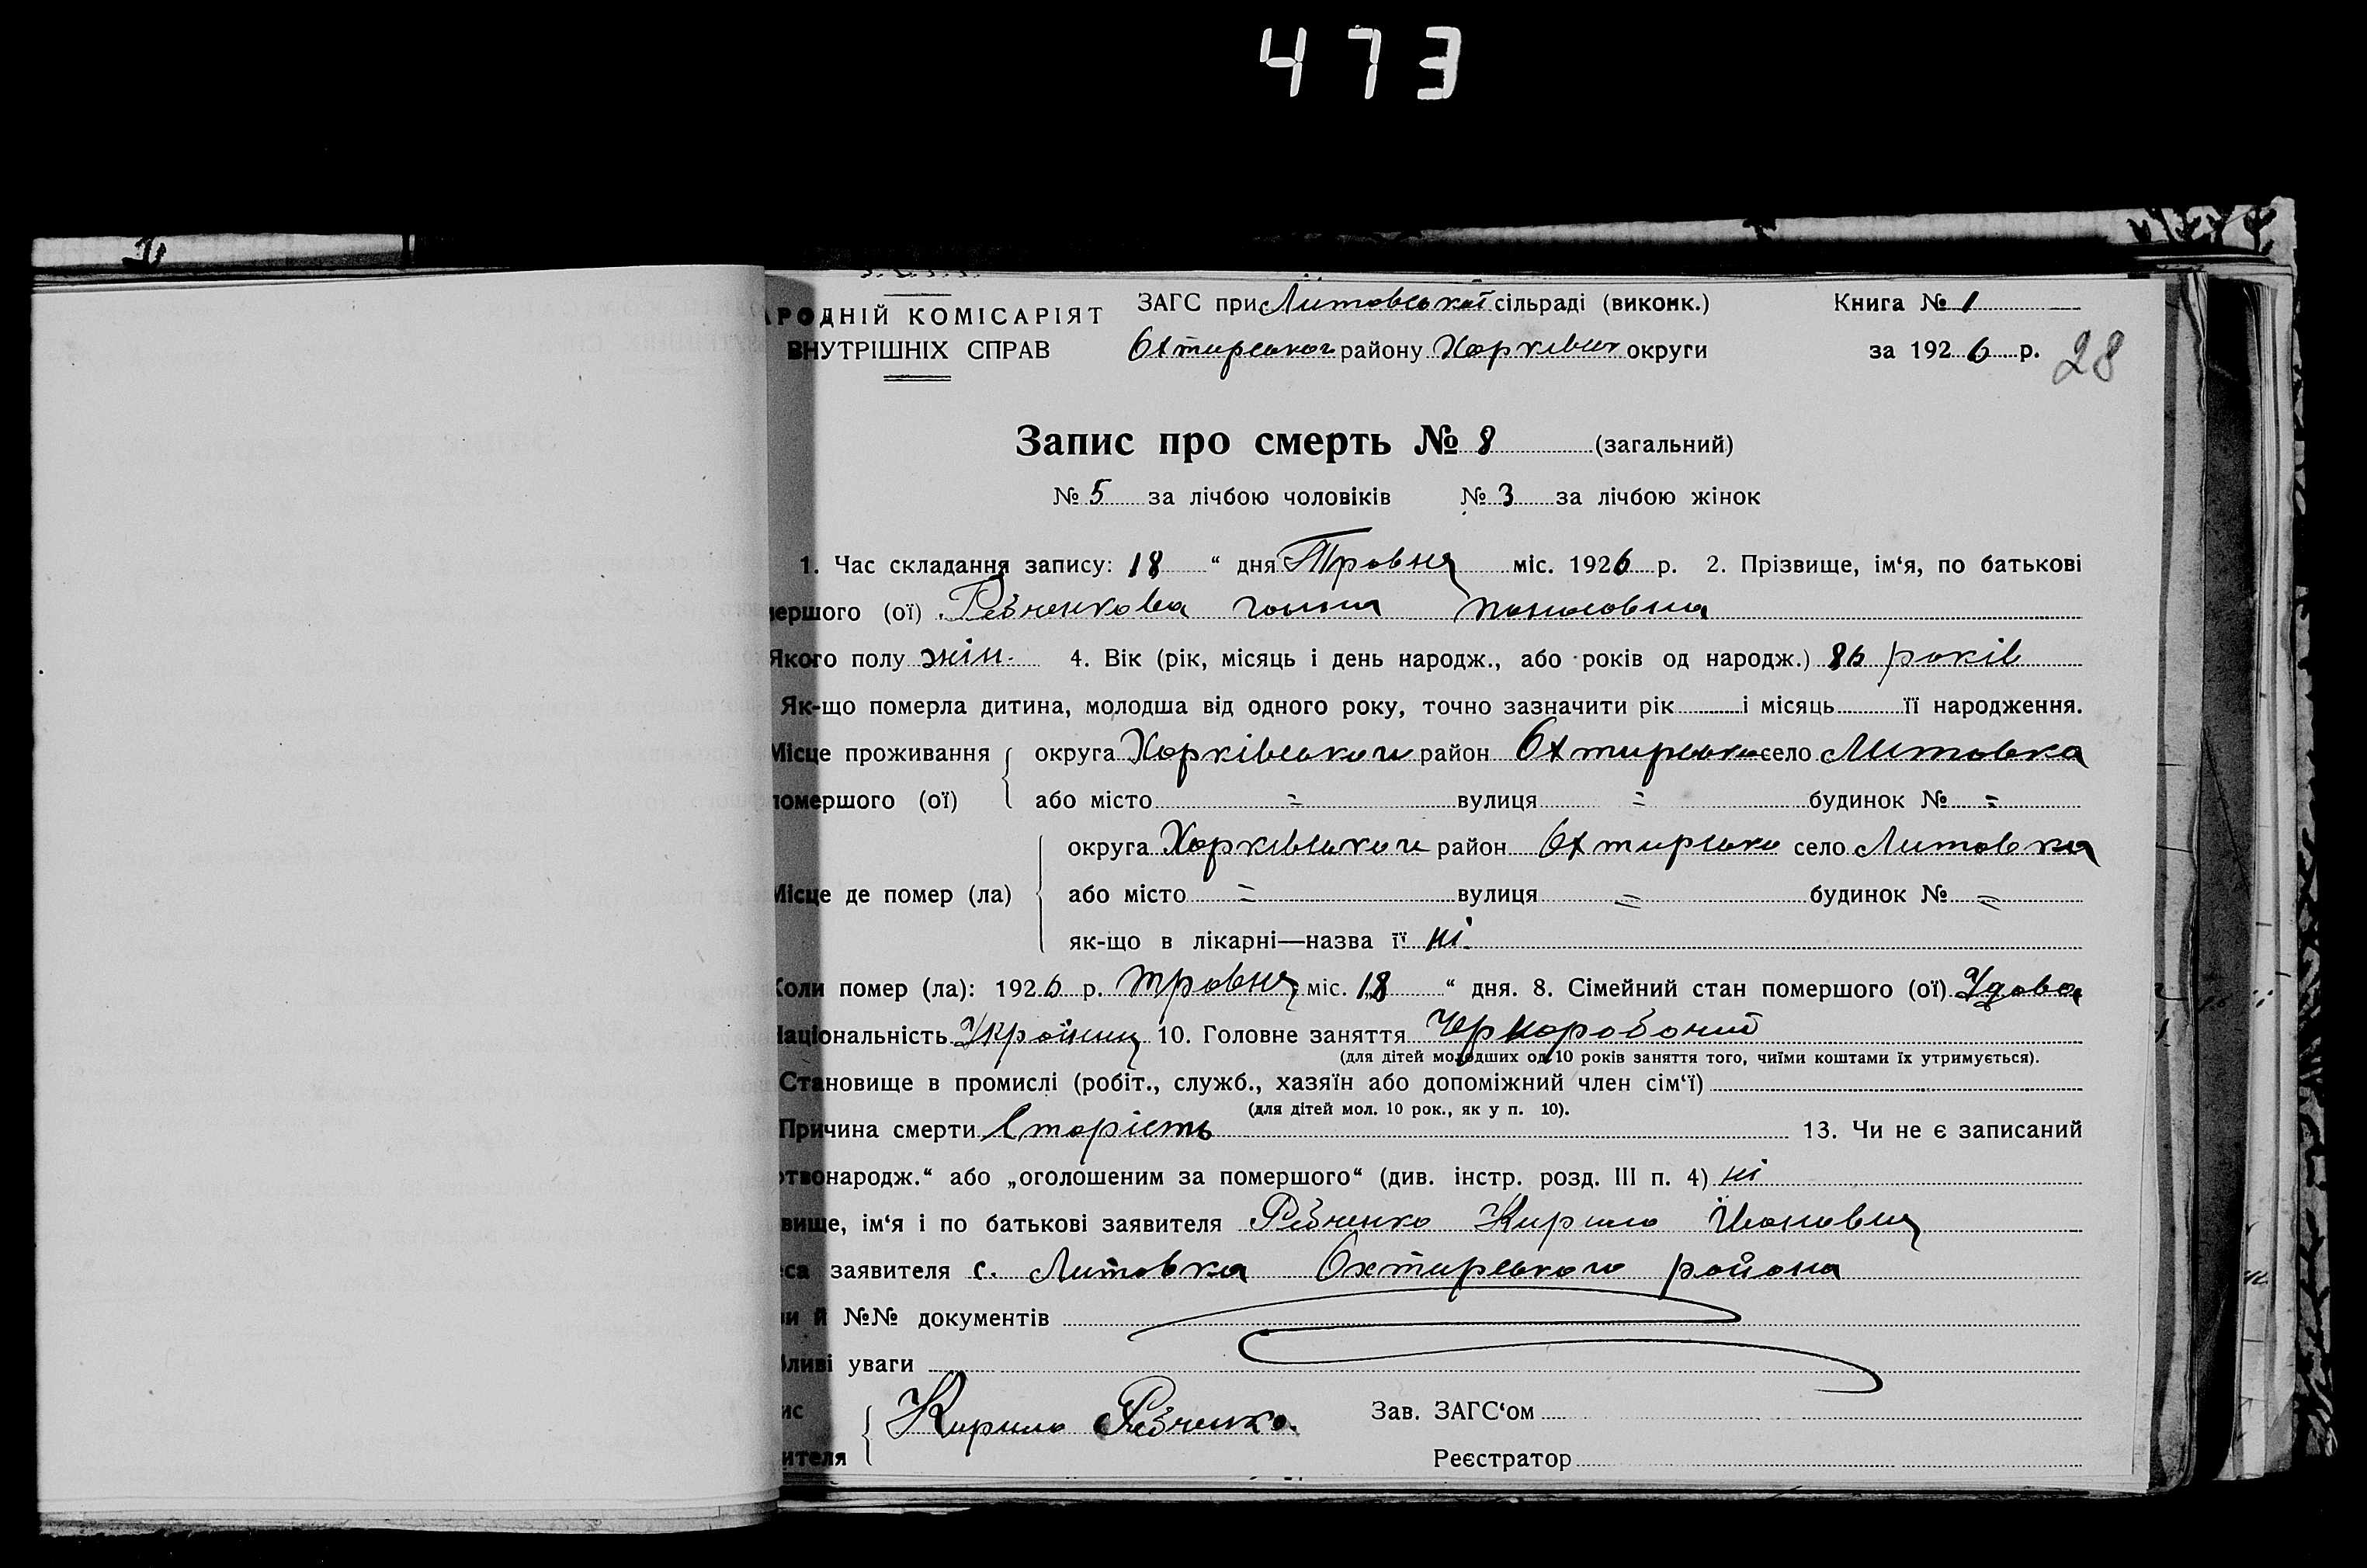 473
РОДНІЙ КОМІСАРІЯТ
ВНУТРІШНІХ СПРАВ
ЗАГС при Литовської сільраді (виконк.)
Охтирського району Харківськ округи
Книга № 1
за 1926 р.
28
Запис про смерть № 8 (загальний)
№ 5 за лічбою чоловіків № 3 за лічбою жінок
1. Час складання запису: 18 “ дня Травня міс. 1926 р. 2. Прізвище, ім‘я, по батькові
мершого (ої) Рєзненкова
Якого полу жін. 4. Вік (рік, місяць і день народж., або років од народж.) 86 років
Як-що померла дитина, молодша від одного року, точно зазначити рік і місяць її народження.
Місце проживання округа Харківського район Охтирсько село Литовка
помершого (ої) або місто = вулиця = будинок № =
округа Харківського район Охтирсько село Литовка
Місце де помер (ла) або місто = вулиця = будинок № =
як-що в лікарні—назва її ні.
Коли помер (ла): 1926 р. травня міс. 18 “ дня. 8. Сімейний стан помершого (ої) Удова
Національність 10. Головне заняття
(для дітей молодших од 10 років заняття того, чиїми коштами їх утримується).
Становище в промислі (робіт., служб., хазяїн або допоміжний член сім‘ї)
(для дітей мол. 10 рок., як у п. 10).
Причина смерти Старість 13. Чи не є записаний
отвонародж.“ або „оголошеним за помершого“ (див. інстр. розд. III п. 4) ні
вище, ім‘я і по батькові заявителя Рєзненко Кирило Іванович
еса заявителя с. Литовка Охтирського района
ви й №№ документів
бливі уваги
ис
ителя
Кирило Рєзненко.
Зав. ЗАГС‘ом
Реєстратор